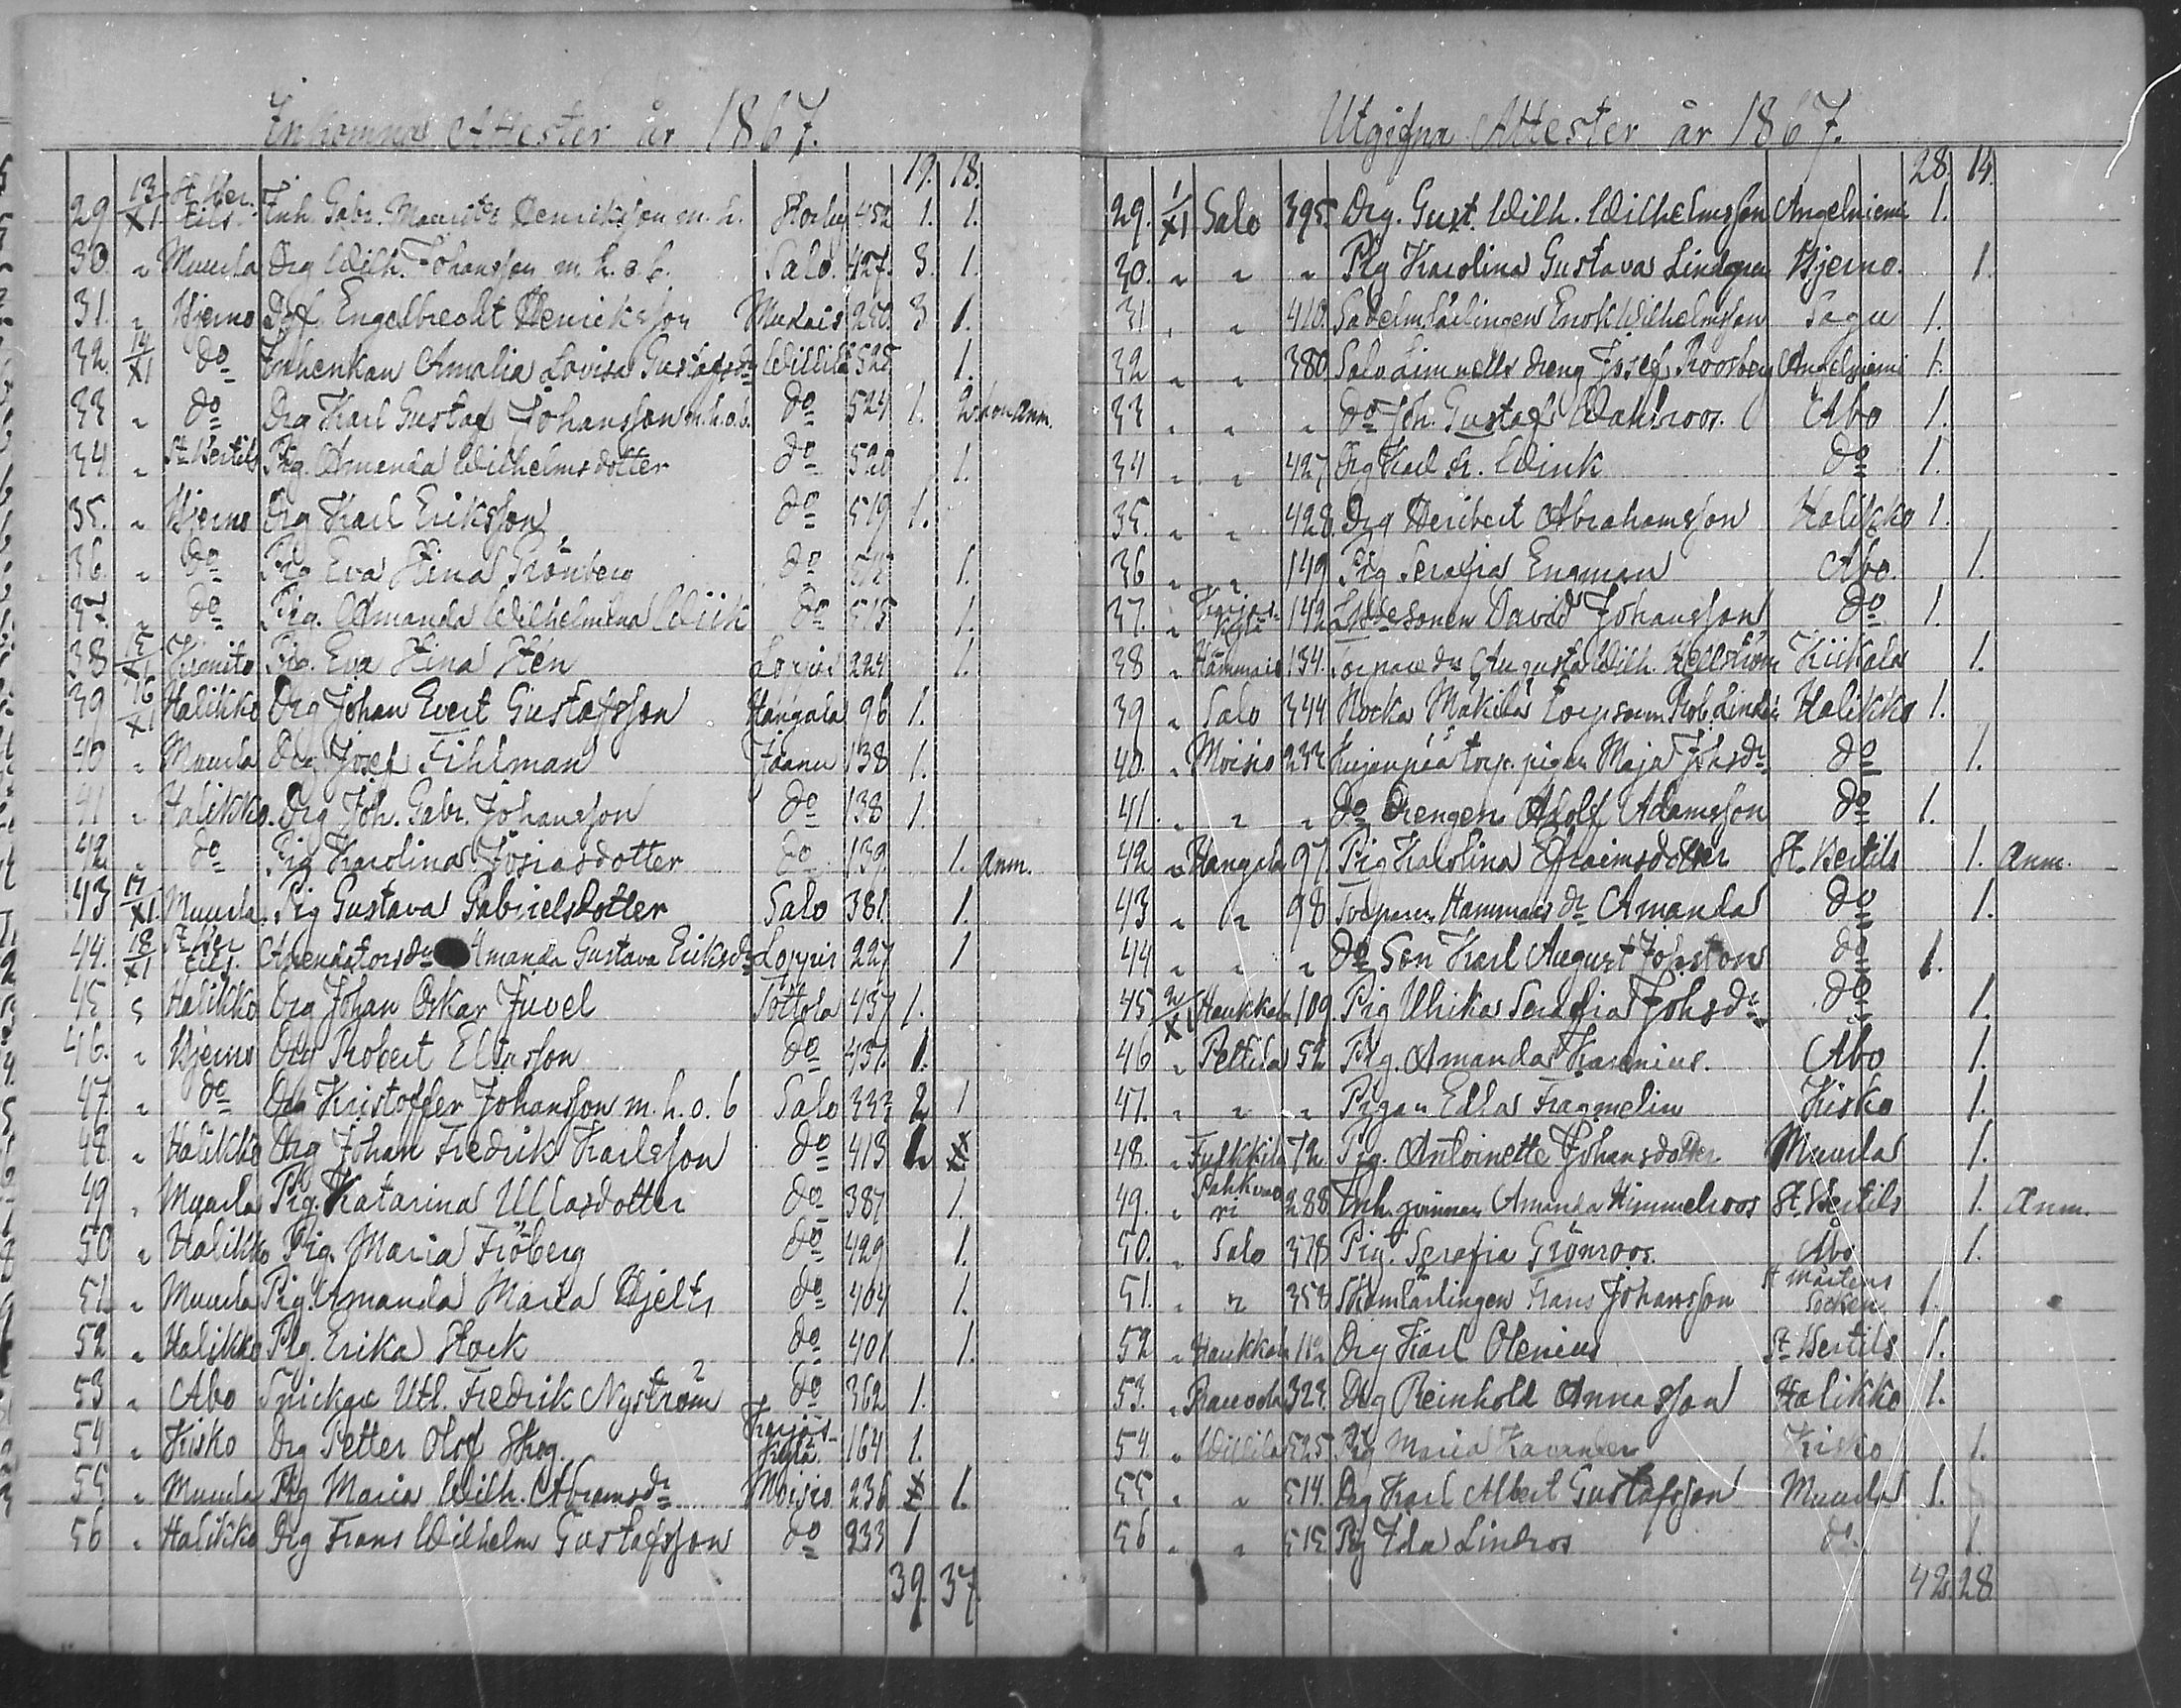 Inkomna Attester år 1867.
19. 18.
29 13/XI St Ber tils Inh. Gabr. Mauritz Henriksson m. h. 452 1. 1.
30. " Muurla Drg Wilh. Johansson m. h. o. b. Salo 427. 3. 1.
31. " Bjerno Engelbrecht Henriksson 250. 3 1.
32. 14/XI do Inhenkan Amalia Lovisa Gustafsdr 525 1.
33 " do Drg Karl Gustaf Johansson m.h.o.b. do 524 1. 2 Anm.
34 " St Bertils Pig. Amanda Wilhelmsdotter do 520 1.
35. " Bjerno Drg Karl Eriksson do 519 1.
36. " do Pig Eva Stina Grönberg do 1.
37. " do Pig. Amanda Wilhelmina Wiik do 515 1.
38 15/XI Kimito Pig. Eva Stina Sten 224 1.
39 16/XI Halikko Drg Johan Evert Gustafsson Hangala 96 1.
40 " Muurla Drg Josef Fihlman 138 1.
41 " Halikko. Drg Joh. Gabr. Johansson do 138 1.
42 " do Pig Karolina Josiasdotter do 139. 1. Anm.
43 17/XI Muurla. Pig Gustava Gabrielsdotter Salo 381. 1.
44. 18/XI St Ber tils. Arendatorsdr Amanda Gustava Eriksdr 227 1
45 " Halikko Drg Johan Oskar Juvel Tottola 457 1.
46. " Bjerno Drg Robert Eliasson do 457. 1.
47. " do Drg Kristoffer Johansson m. h. o. b Salo 332 2 1
48. " Halikko Drg Johan Fredrik Karlsson do 413 1.
49 " Muurla Pig. Katarina Ullasdotter do 387 1.
50 " Halikko Pig. Maria Fröberg do 429 1.
51 " Muurla Pig. Amanda Maria Hjelt do 404 1.
52 " Halikko Pig. Erika Stock do 401 1.
53 " Abo Snickare Utl. Fredrik Nyström do 362 1.
54 " Kisko Drg Petter Olof Skog. Karjas kylä 164 1.
55 " Muurla Pig Maria Wilh. Abramsdr Moisio 236 1.
56 " Halikko Drg Frans Wilhelm Gustafsson do 233 1
39. 37.
Utgifna Attester år 1867.
28. 14.
29. 1/XI Salo 395. Drg. Gust. Wilh. Wilhelmsson Angelniemi 1.
30. " " " Pig Karolina Gustava Lindgren Bjerno. 1.
31 " " 410. Sadelm.lärlingen Enok Wilhelmsson Sagu 1.
32 " " 380 Salo Limnells dreng Josef Roosberg Angelniemi 1.
33 " " " do Joh. Gustaf Wahlroos. Åbo 1.
34 " " 427 Drg Karl Wink do 1.
35. " " 428. Drg Heribert Abrahamsson Halikko 1.
36 " " 149. Pig Serafia Engman Åbo. 1.
37. " Karjas kylä 142 sonen David Johansson do 1.
38 " Hämmäis 134. Torpare dr Augusta Wilh. Hellström Kiikala 1.
39 " Salo 344 Mäkilä Halikko 1.
40. " Moisio 233 torp. pigan Maja Johsdr do 1.
41. " " " do drengen Adolf Adamsson do 1.
42 " Hangala 97. Pig Karolina Efraimsdotter St. Bertils 1. Anm.
43 " " 98 Hammars dr Amanda do 1.
44 " " " do Son Karl August Johsson do 1.
45 2/XI Haukkala 109. Pig Ulrika Serafia Johsdr do 1.
46 " Pettila 52 Pig. Amanda Karenius. Åbo 1.
47. " " " Pigan Edla Fragmelin Kisko 1.
48. " 72 Pig. Antoinette Johansdotter Muurla 1.
49. " 288 Inh. qvinnan Amanda Himmelroos St. Bertils 1. Anm.
50. " Salo 378 Pig. Serafia Grönroos. Abo 1.
51. " " 358 Skom.lärlingen Frans Johansson St Mårtens Socken 1.
52 " Haukkala 112 Drg Karl Olenius St Bertils 1.
53. " 323. Drg Reinhold Annasson Halikko 1.
54. " 525. Pig Maria Kavander Kisko 1.
55 " " 514. Drg Karl Albert Gustafsson Muurla 1.
56 " " 515 Pig Ida Lindros do. 1.
42. 28